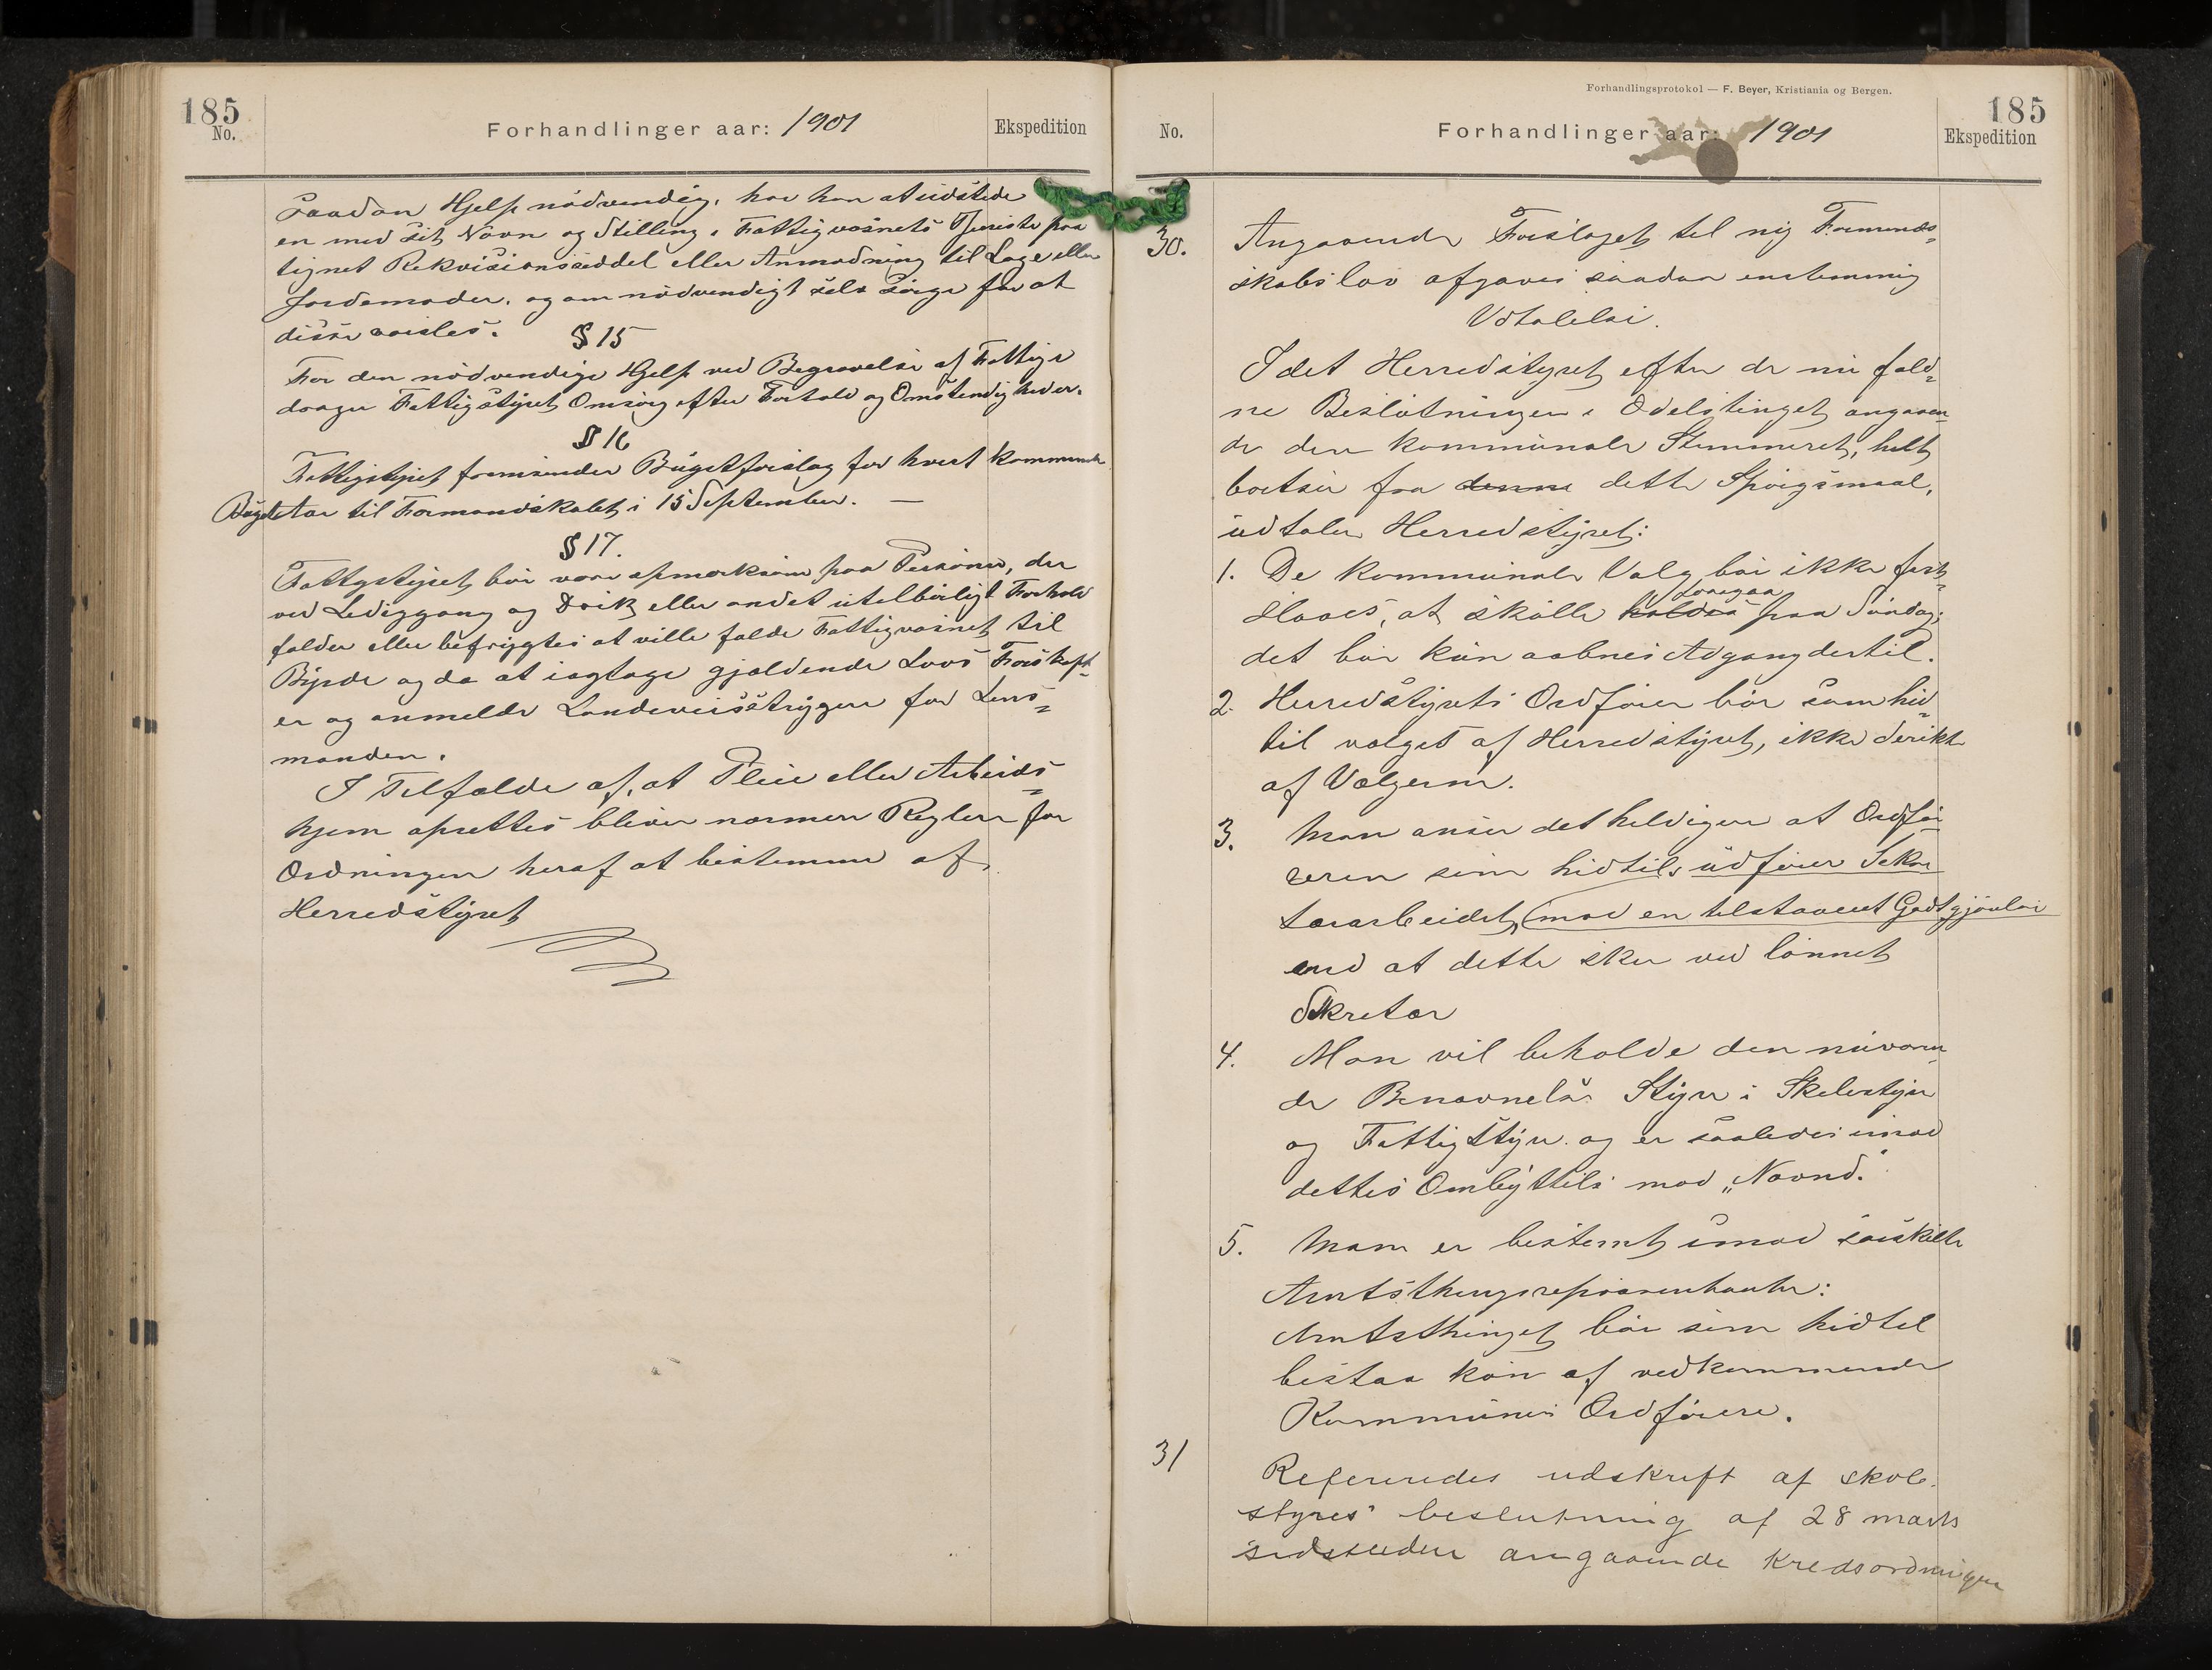 185
No.
Forhandlinger aar: 1901
Ekspedition
saadan Hjelp nödvendig, har han at udstede
en med sit Navn og Stilling i Fattigvæsnets Tjeneste paa
tegnet Rekvisisionsseddel eller Anmodning til Læge eller
Jordemoder, og om nödvendigt selv sörge for at
disse varsles.
§ 15
For den nödvendige Hjelp ved Begravelse af Fattige
drager Fattigstyret Omsorg efter Forhold og Omstendigheder.
§ 16
Fattigstyret fremsender Bugetforslag for hvert kommende
Bugetaar til Formandskabet i 15 September. —
§ 17.
Fattigstyret bör være opmerksom paa Personer, der
ved Lediggang og Drik eller andet utilbörligt Forhold
falder eller befrygtes at ville falde Fattigvæsnet til
Byrde og da at iagtage gjældende Lovs Forskrift-
er og anmelde Landeveisstrygere for Lens-
manden.
I Tilfælde af, at Pleie eller Arbeids-
hjem oprettes bliver nærmere Regler for
Ordningen heraf at bestemme af
Herredstyret
Forhandlingsprotokol — F. Beyer, Kristiania og Bergen.
185
No.
Forhandlinger aar: 1901
Ekspedition
30.
Angaaende Forslaget til ny Formands-
skabslov afgaves saadan enstemmig
Udtalelse.
Idet Herredstyret efter de nu fald-
ne Beslutninger i Odelstinget angaaen-
de den kommunale Stemmeret, helt
bortser fra denne dette Spörgsmaal,
udtaler Herredstyret:
1. De kommunale Valg bör ikke fast-
foregaa
slaaes, at skulle holdes paa Söndag;
det bör kun aabnes Adgang dertil.
2. Herredstyrets Ordförer bör som hid-
til vælges af Herredstyret, ikke direkte
af Vælgerne.
3. Man anser det heldigere at Ordfö-
reren som hidtil udförer Sekre
tærarbeidet (mod en tilstaaet Godtgjörelse
end at dette sker ved lönnet
Sekretær
4. Man vil beholde den nuværen
de Benævnelse Styre i Skolestyre
og Fattigstyre og er saaledes imod
dettes Ombyttels mod „Nævnd."
5. Man er bestemt imod særskilte
Amtsthingsrepræsentanter:
Amtsthinget bör som hidtil
bestaa kun af vedkommende
Kommunes Ordförere.
31
Refereredes udskrift af skole
styres beslutning af 28 marts
sidstleden angaaende kredsordningen